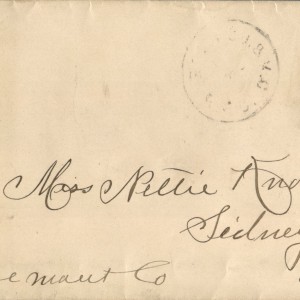 Miss Nettie Kno
Sidney
emont Co